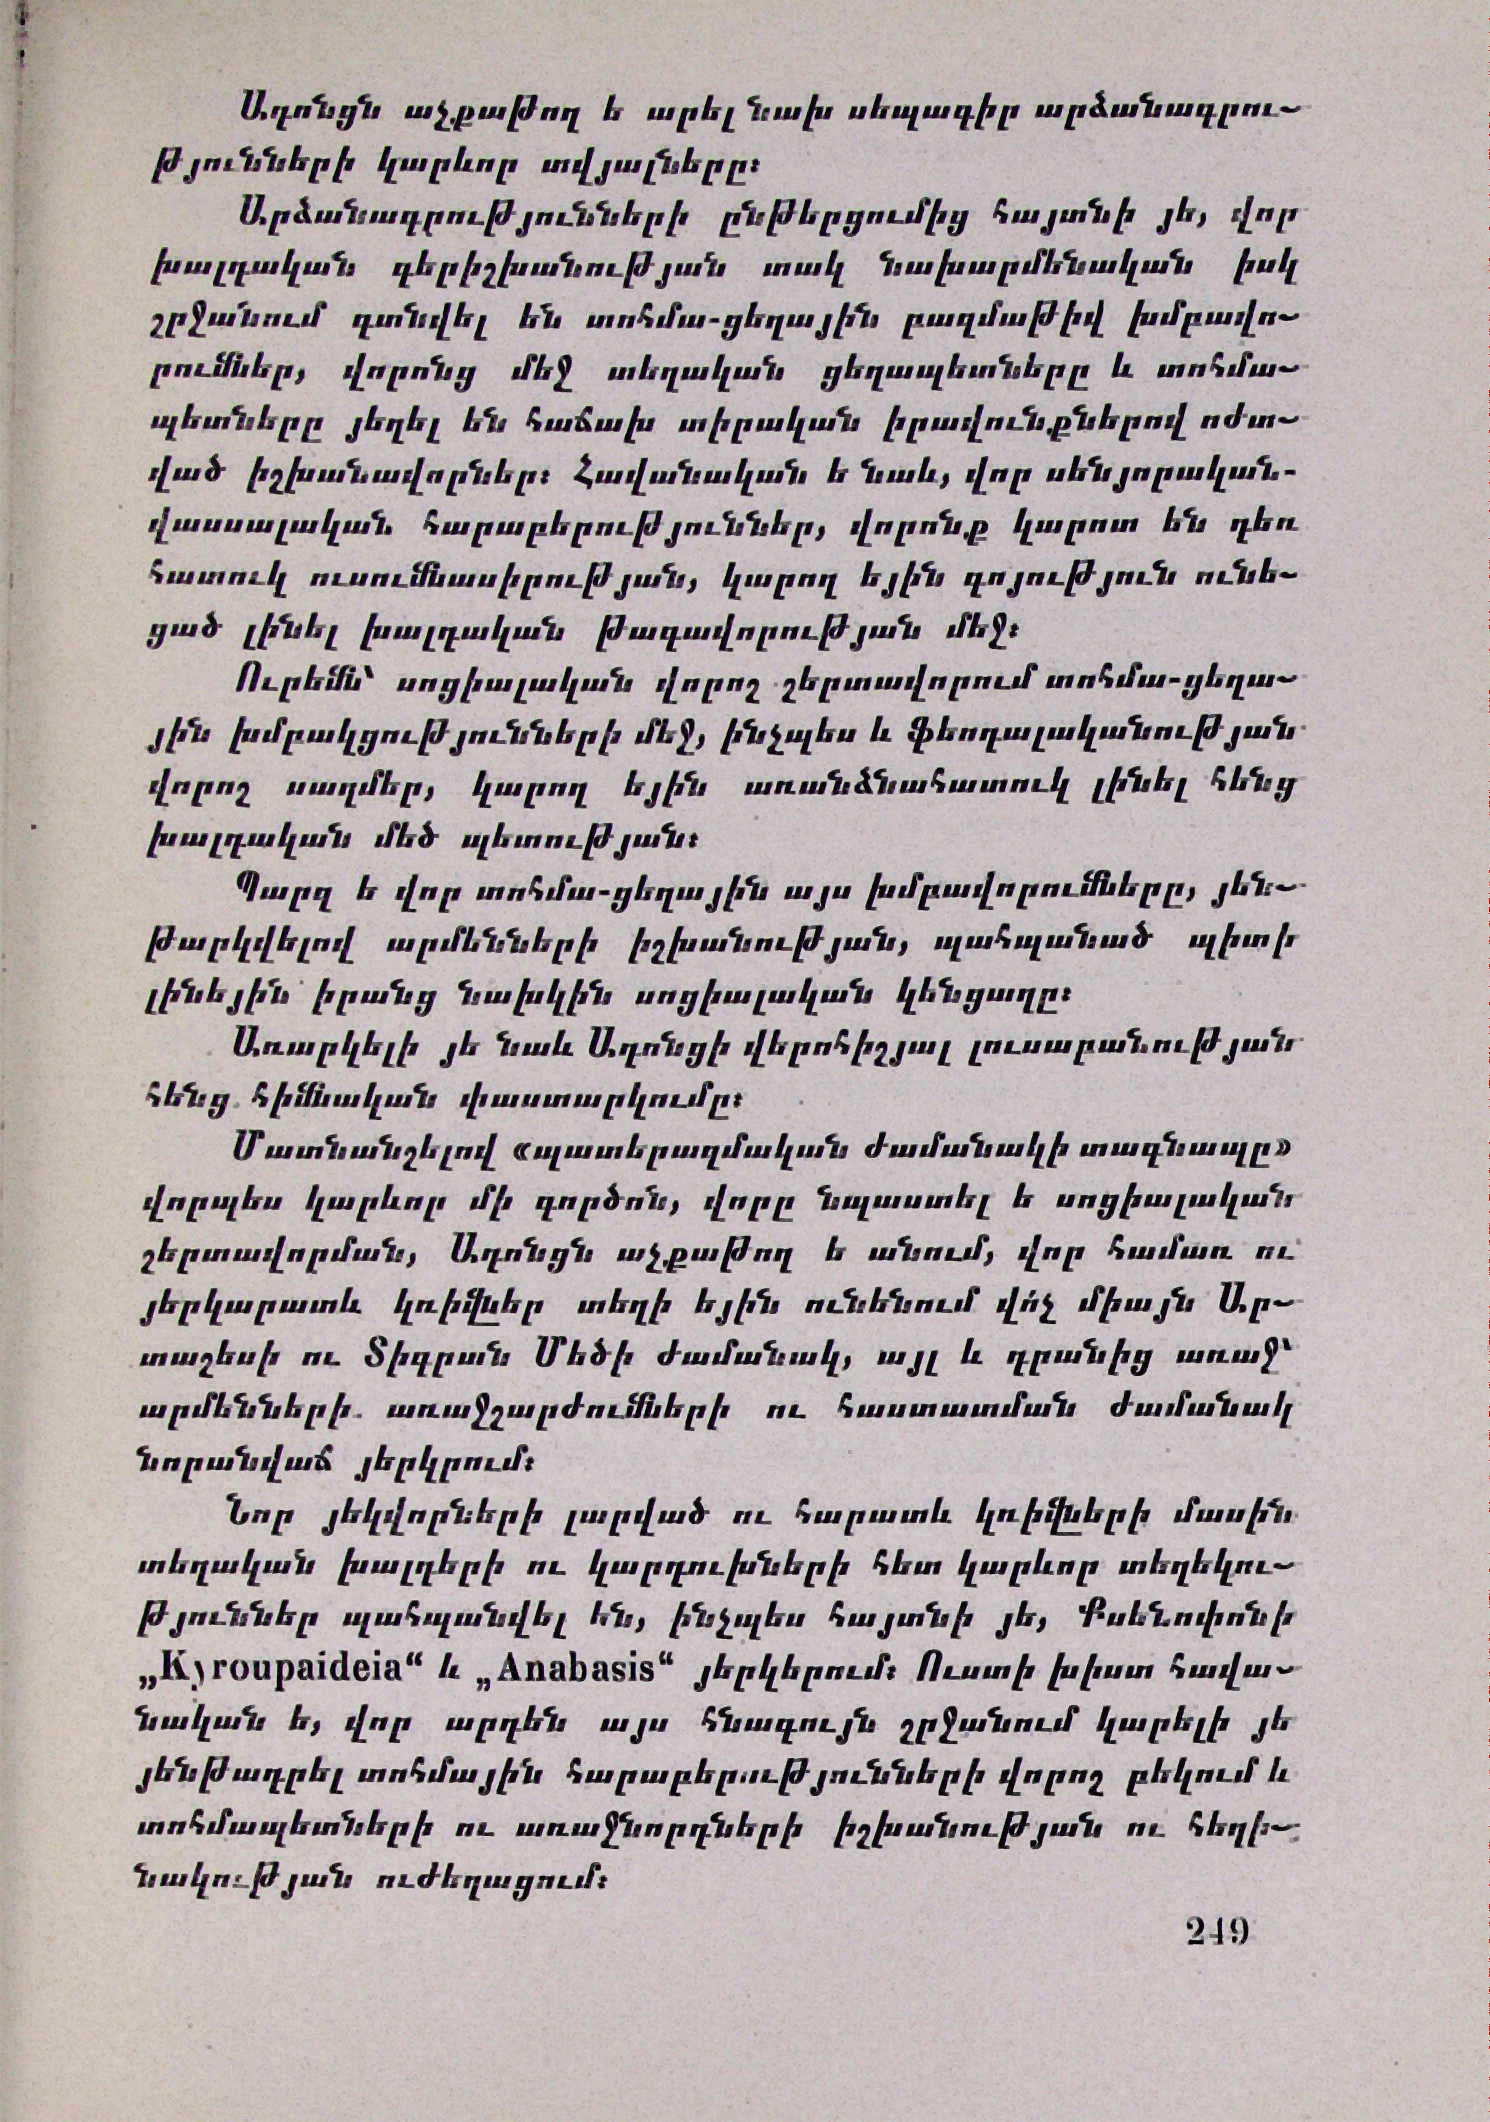 Ադոնցն աչքաթող ե արել նախ սեպագիր արձանագրու-
թյունների կարևոր տվյալները։
Արձանագրությունների ընթերցումից հայտնի յե, վոր
խալդական գերիշխանության տակ նախարմենական իսկ
շրջանում գտնվել են տոհմա-ցեղային բազմաթիվ խմբավո-
րումներ, վորոնց մեջ տեղական ցեղապետները և տոհմա-
պետները յեղել են հաճախ տիրական իրավունքներով ոժտ-
ված իշխանավորներ։ Հավանական ե նաև, վոր սենյորական-
վասսալական հարաբերություններ, վորոնք կարոտ են դեռ
հատուկ ուսումնասիրության, կարող եյին գոյություն ունե-
ցած լինել խալդական թագավորության մեջ։
Ուրեմն՝ սոցիալական վորոշ շերտավորում տոհմա-ցեղա-
յին խմբակցությունների մեջ, ինչպես և ֆեոդալականության
վորոշ սաղմեր, կարող եյին առանձնահատուկ լինել հենց
խալդական մեծ պետության։
Պարզ ե վոր տոհմա-ցեղային այս խմբավորումները, յեն-
թարկվելով արմենների իշխանության, պահպանած պիտի
լինեյին իրանց նախկին սոցիալական կենցաղը։
Առարկելի յե նաև Ադոնցի վերոհիշյալ լուսաբանության
հենց հիմնական փաստարկումը։
Մատնանշելով «պատերազմական ժամանակի տագնապը»
վորպես կարևոր մի գործոն, վորը նպաստել ե սոցիալական
շերտավորման, Ադոնցն աչքաթող ե անում, վոր համառ ու
յերկարատև կռիվներ տեղի եյին ունենում վո՛չ միայն Ար-
տաշեսի ու Տիգրան Մեծի ժամանակ, այլ և դրանից առաջ՝
արմենների առաջշարժումների ու հաստատման ժամանակ
նորանվաճ յերկրում։
Նոր յեկվորների լարված ու հարատև կռիվների մասին
տեղական խալդերի ու կարդուխների հետ կարևոր տեղեկու-
թյուններ պահպանվել են, ինչպես հայտնի յե, Քսենոփոնի
„Kyroupaideia“ և „Anabasis“ յերկերում։ Ուստի խիստ հավա-
նական ե, վոր արդեն այս հնագույն շրջանում կարելի յե
յենթադրել տոհմային հարաբերությունների վորոշ բեկում և
տոհմապետների ու առաջնորդների իշխանության ու հեղի-
նակության ուժեղացում։
249